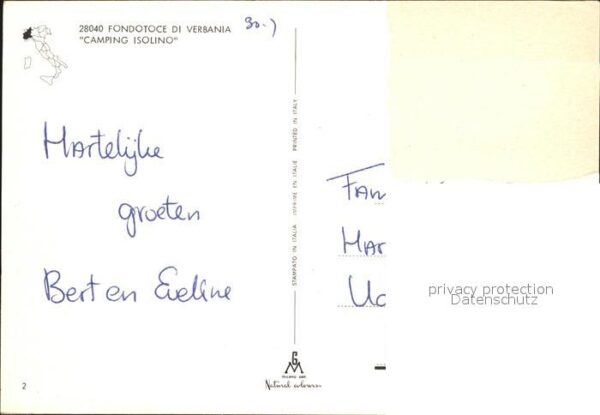 28040 FONDOTOCE DI VERBANIA
"CAMPING ISOLINO"
30.-)
Hartelijke
groeten
Bert en Eveline
STAMPATO IN ITALIA IMPRIME EN ITALIE PRINTED IN ITALY
FAM
HAR
privacy protection
Datenschutz
GM
Natural colours
2